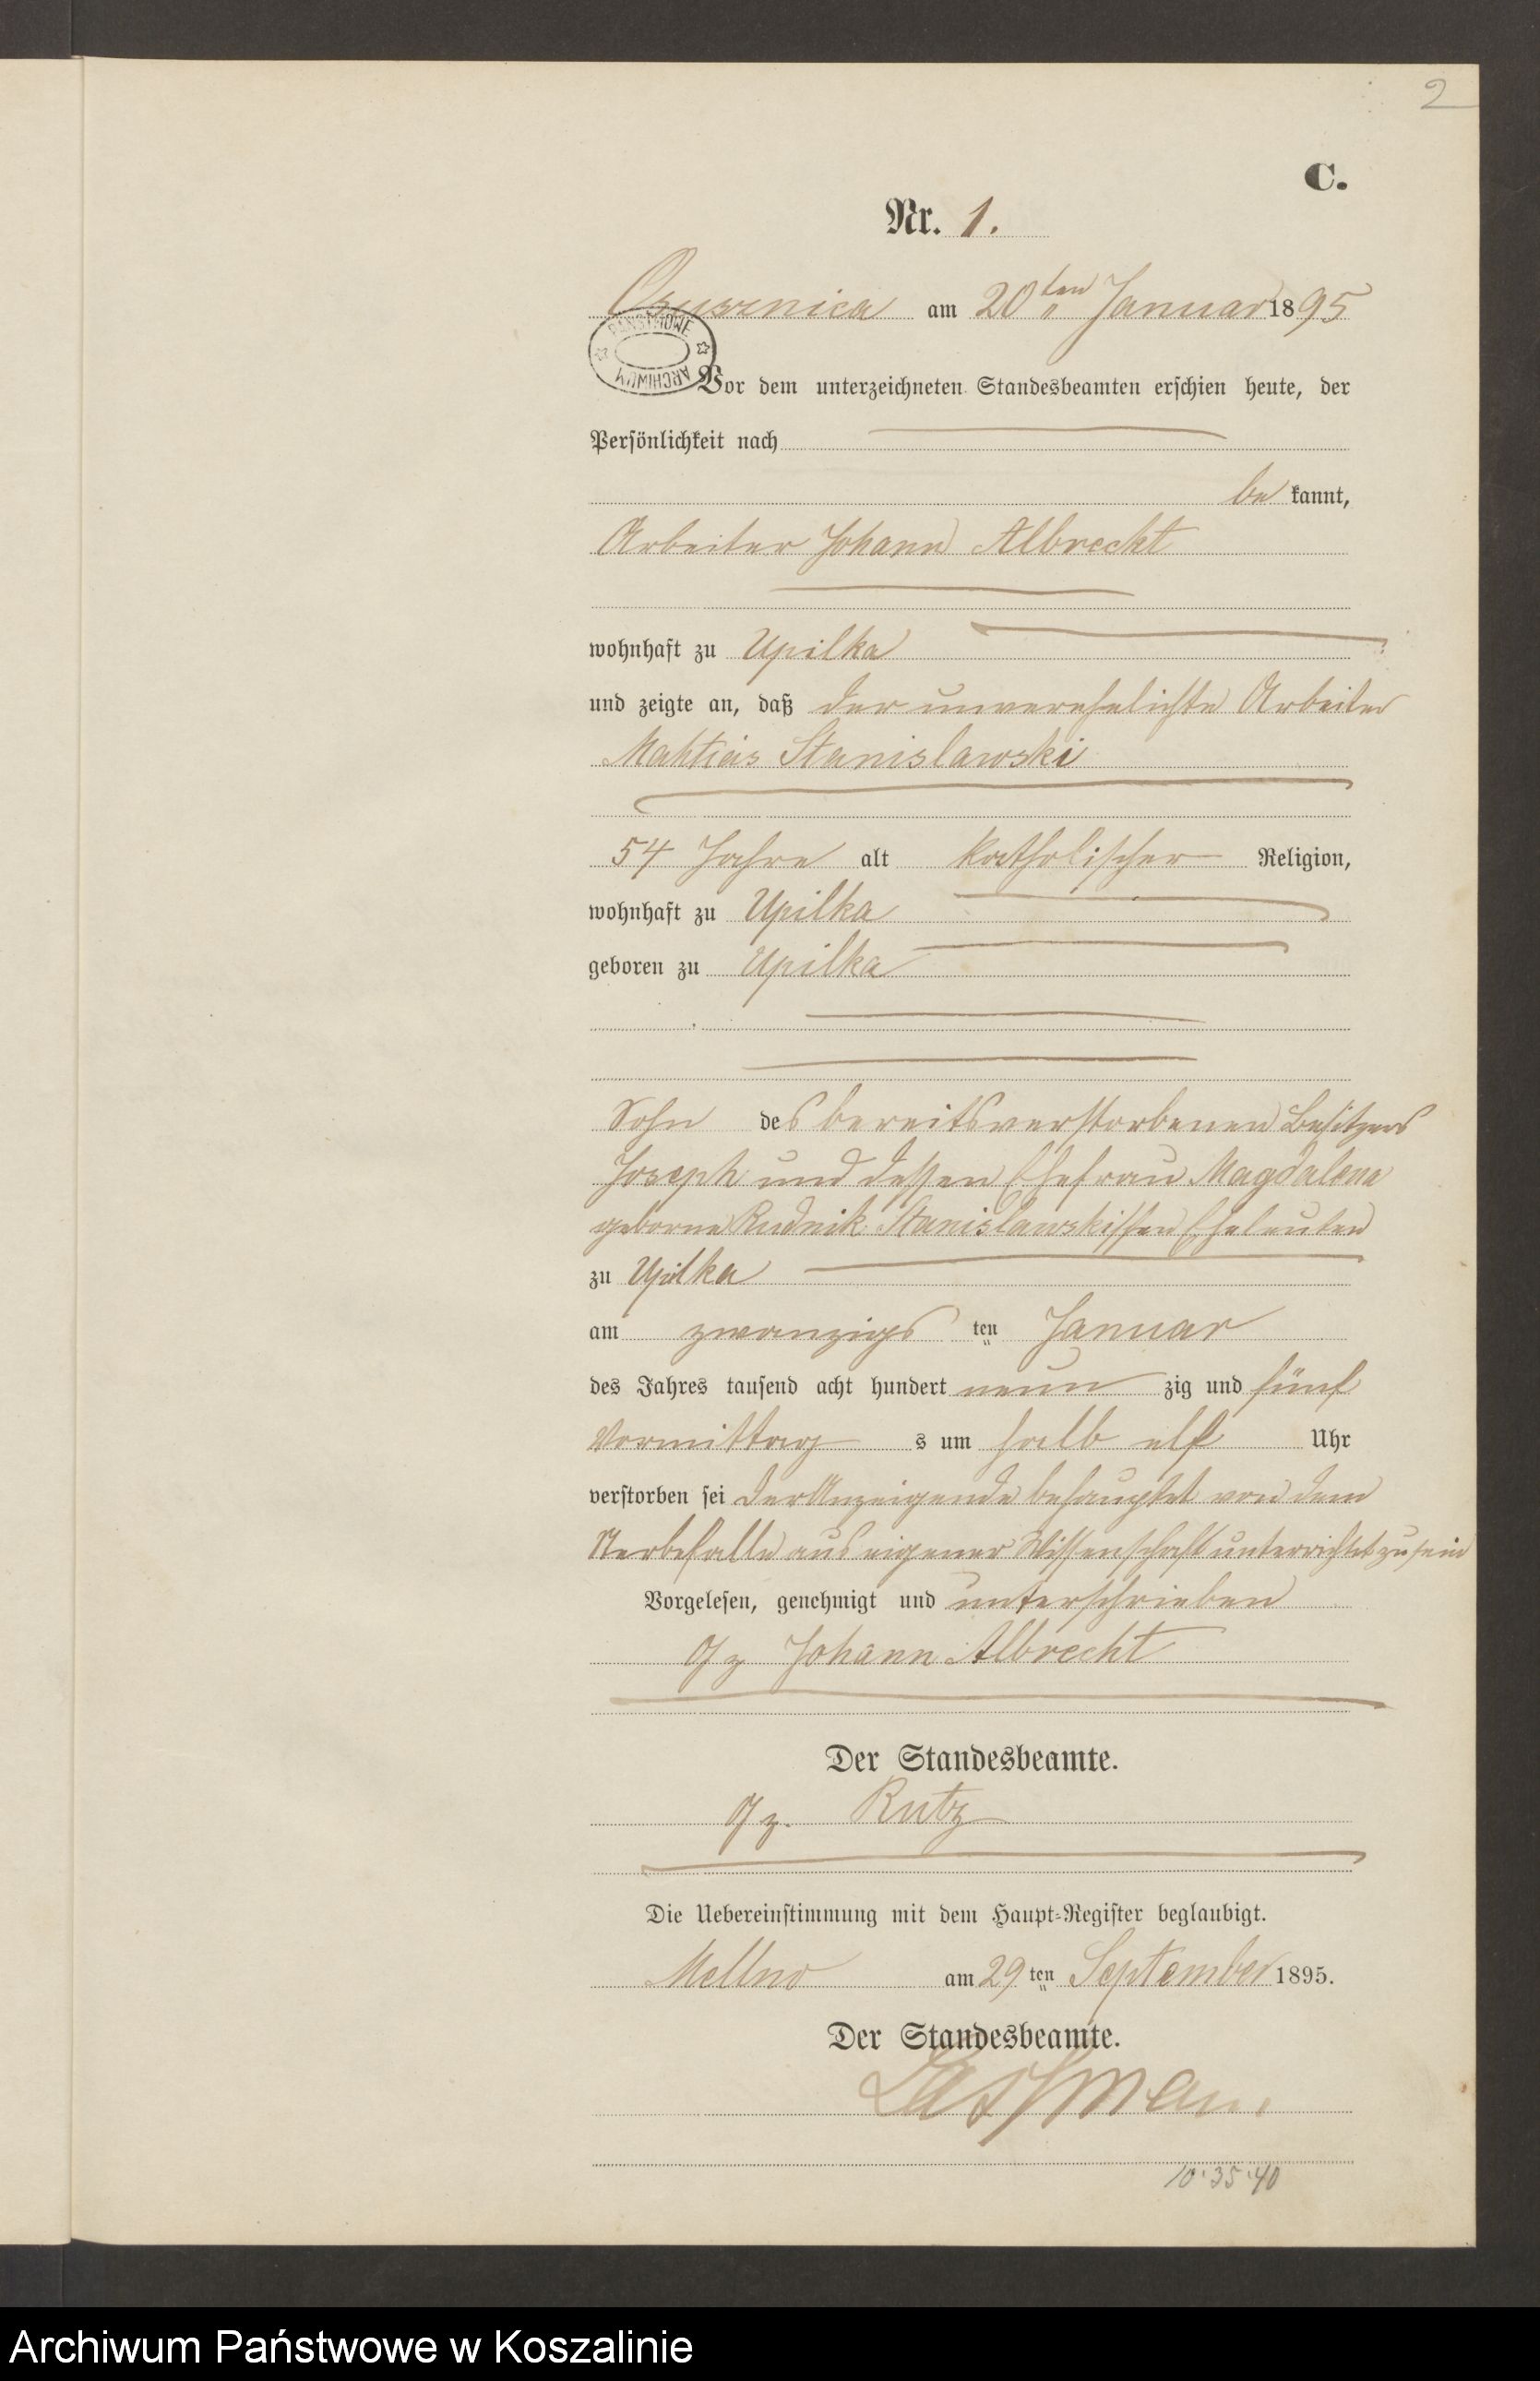 2
C.
Nr. 1.
Osusznica am 20ten Januar 1895
PAŃSTWOWE ARCHIWUM
Vor dem unterzeichneten Standesbeamten erschien heute, der
Persönlichkeit nach
be kannt,
Arbeiter Johann Albrecht
wohnhaft zu Upilka
und zeigte an, daß der unverehelichte Arbeiter
Stanislawski
54 Jahre alt katholischer Religion,
wohnhaft zu Upilka
geboren zu Upilka
Sohn des bereits verstorbenen Besitzers
Joseph und dessen Ehefrau Magdalena
geborne Rudnik Stanislawskischen Eheleuten
zu Upilka
am zwanzigs ten Januar
des Jahres tausend acht hundert neun zig und fünf
Vormittag s um halb elf Uhr
verstorben sei der Anzeigende behauptet von dem
Sterbefalle aus eigener Wissenschaft unterrichtet zu sein
Vorgelesen, genehmigt und unterschrieben
gz Johann Albrecht
Der Standesbeamte.
gz. Rutz
Die Uebereinstimmung mit dem Haupt-Register beglaubigt.
Mellno am 29 ten September 1895.
Der Standesbeamte.
10·35·40
Archiwum Państwowe w Koszalinie